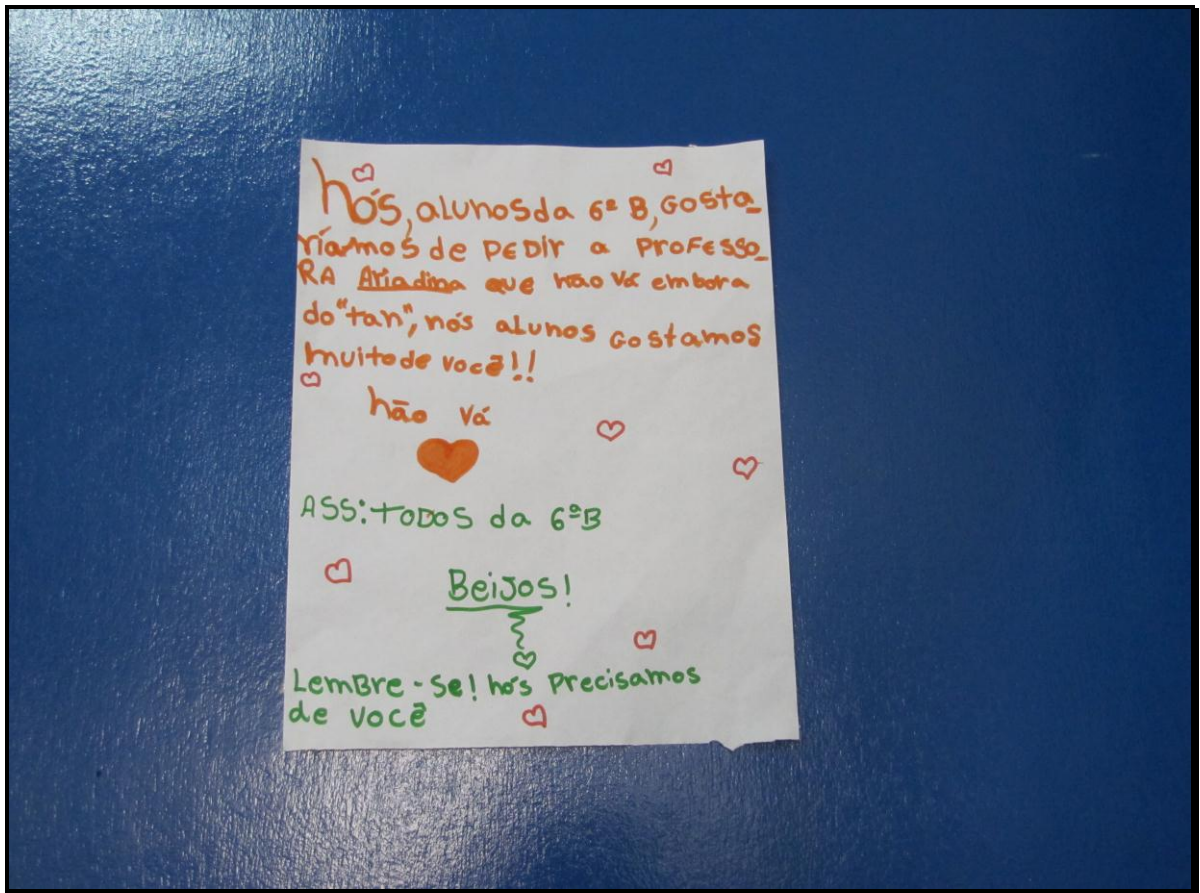 Nós, alunos da 6ª B, gosta_
ríamos de PEDIr a ProFesso_
RA Ariadina que não vá embora
do "tan", nós alunos gostamos
muito de você!!
não vá
ASS: TODOS da 6ºB
BeiJos!
LemBre-se! nós Precisamos
de você